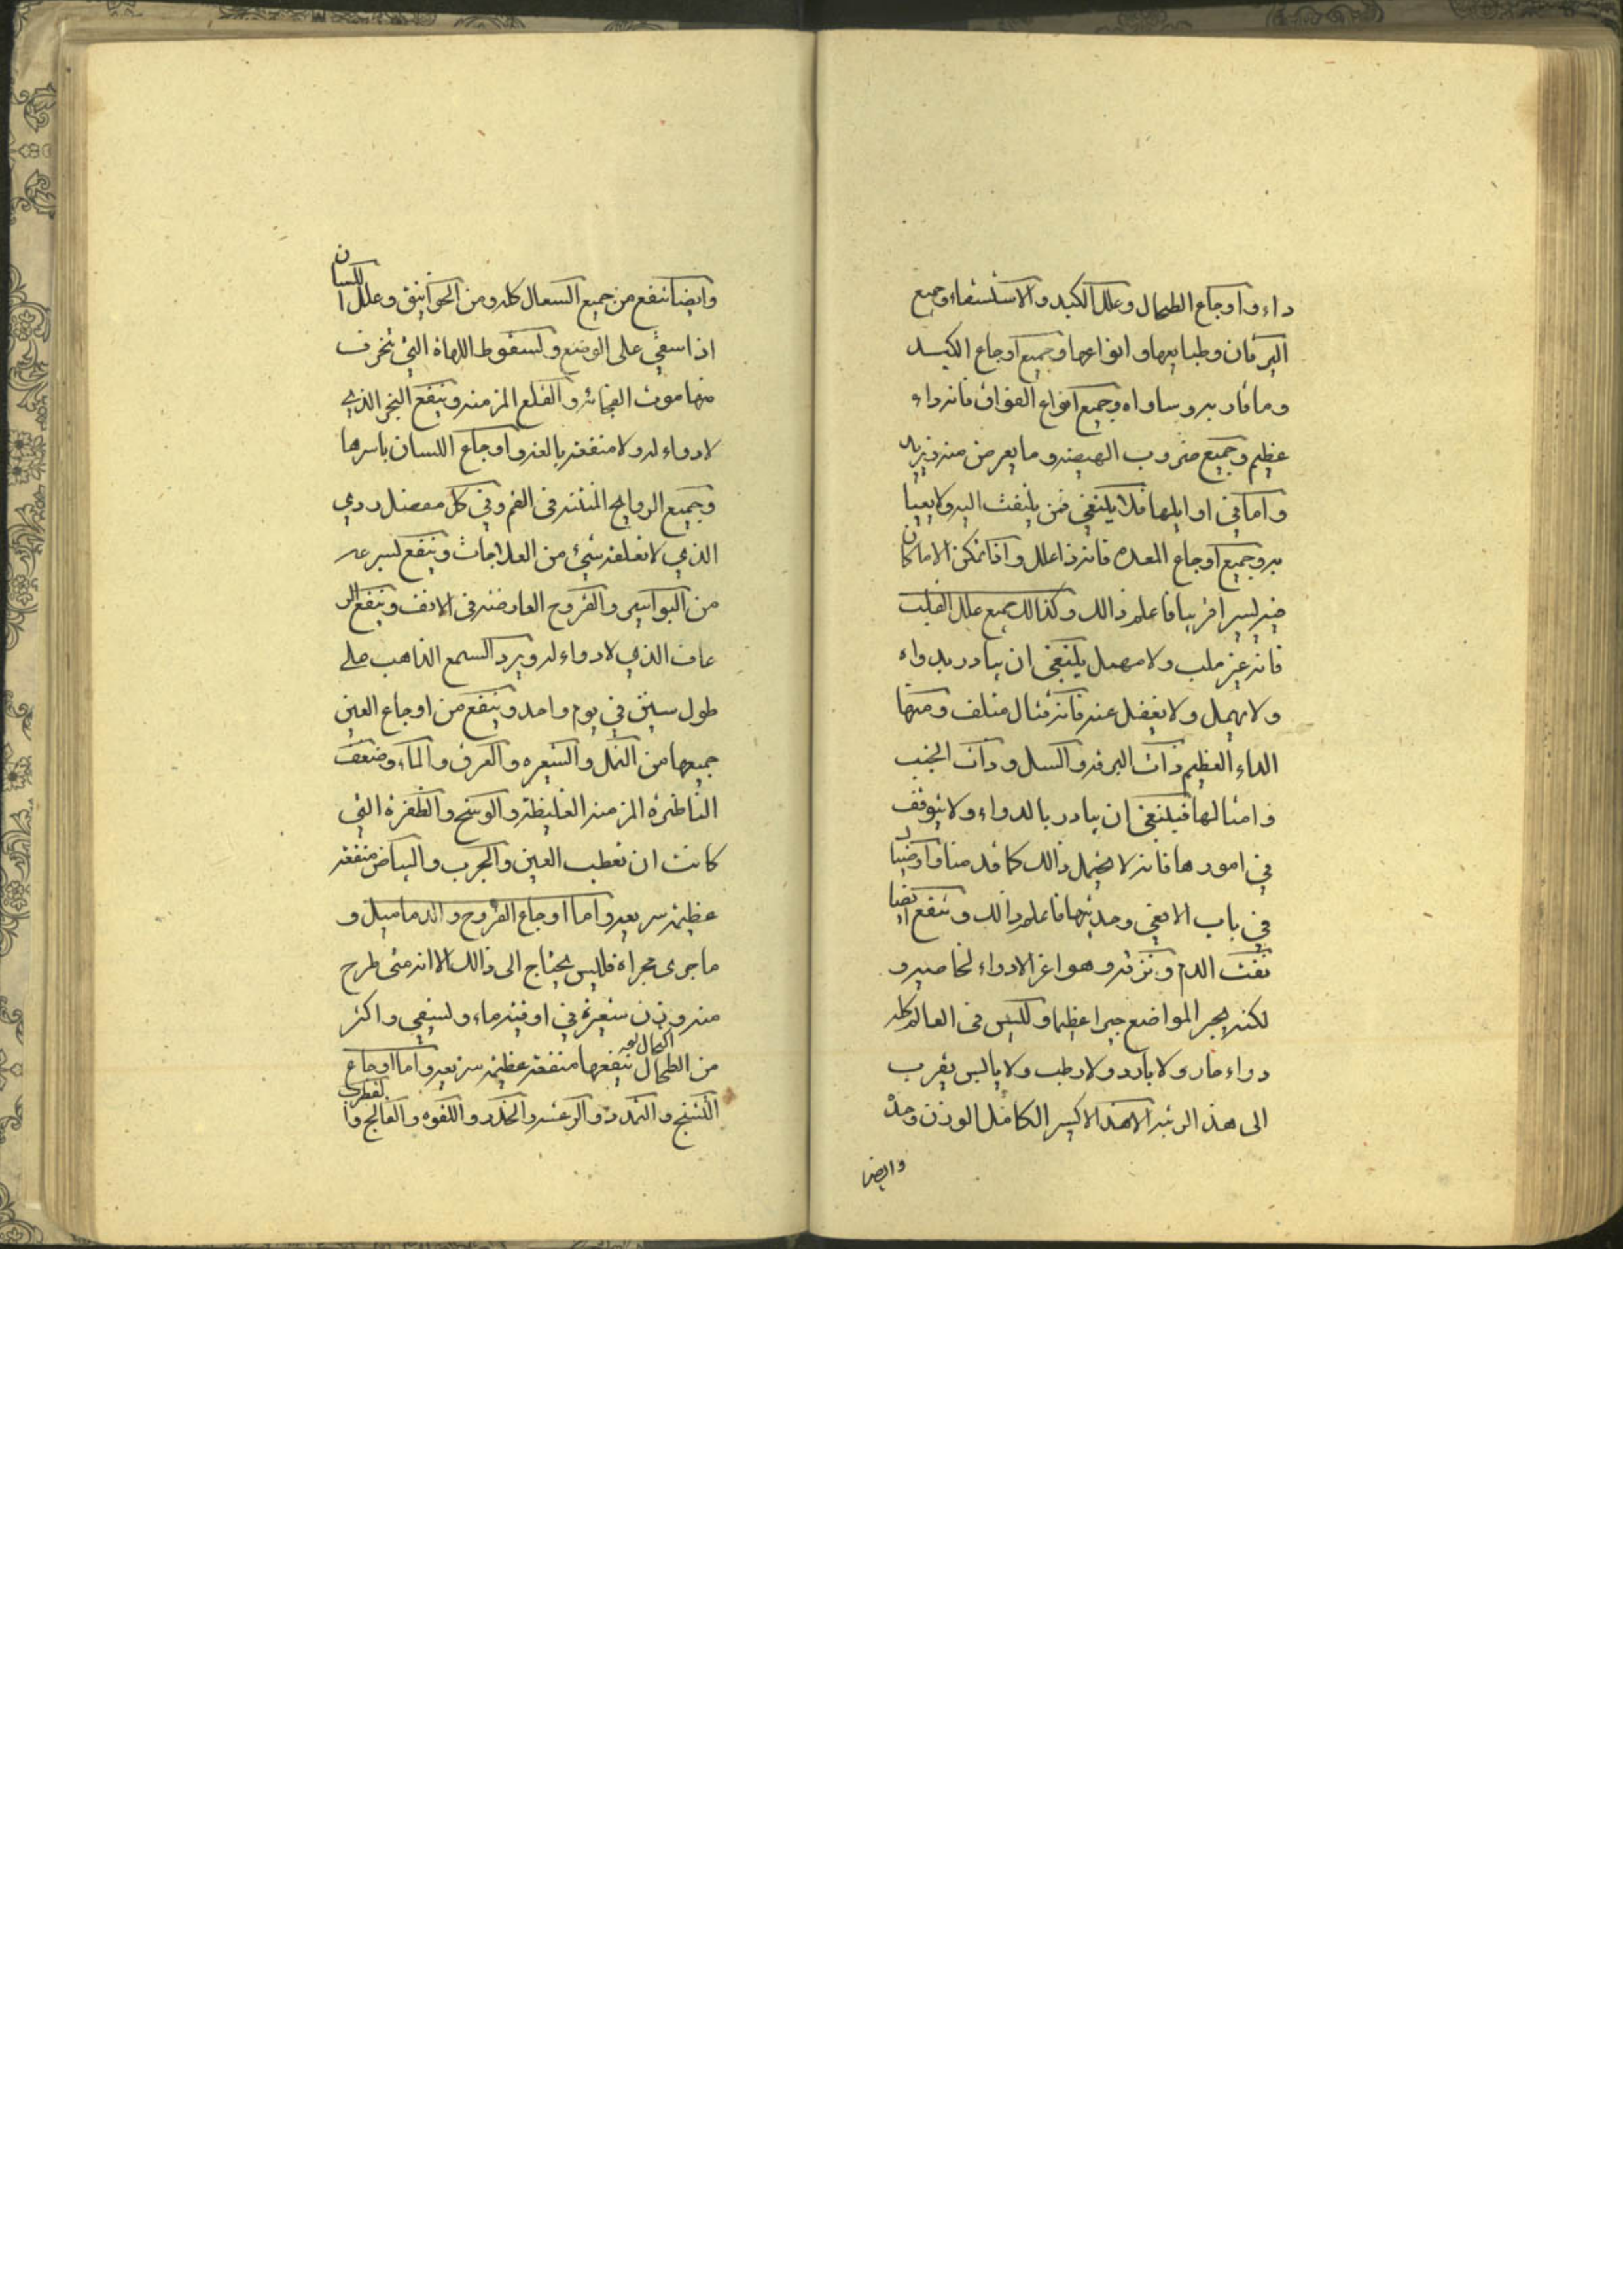 داء واوجاع الطحال وعلل الكبد والاستسقاء وجميع
اليرقان وطبايعها وانواعها وجميع اوجاع الكبد
وما قاربه وساواه وجميع انواع الفواق فانه داء
عظيم وجميع ضروب الهيضه وما يعرض منه
واما في اوايلها فلا يلنبغي فمن يلتفت اليه ولا يعبا
به وجميع اوجاع المعده فانه ذا علل وافا تمكن الاما كان
يسيرا قريبا فاعلم ذالك وكذالك جميع علل القلب
فانه غير ملب ولا مهمل يلنبغي ان يبادر بدواه
ولا يهمل ولا يغفل عنه فانه قتال متلف ومنها
الداء العظيم ذات البرقه والسل وذات الجنب
وامثالها فيلنبغي ان يبادر بالدواء ولا يتوقف
في امورها فانه لا يحتمل ذالك كما قدمنا
في باب الافعي وحديثها فاعلم ذالك وينفع ايضا
نفث الدم ونزفه وهو اعز الادواء لخاصيه و
لكنه يجبر المواضع جبرا عظيما وليس في العالم كله
دواء حار ولا بارد ولا رطب ولا يابس يقرب
الى هذ الرتبه الا هذ الاكسير الكامل الوزن وحده
وايضا
وايضا ينفع من جميع السعال كله ومن الخوانيق وعلل اللسان
اذا سقي على الوضع ولسقوط اللهاة التي تخرف
منها موت الفجائه والقلع المزمنه وينفع البخر الذي
لا دواء له ولا منفعه بالغه واوجاع اللسان باسرها
وجميع الروايح المنتنه في الفم وفي كل مفصل ردي
الذي لا تقلعه شيئ من العلاجات وينفع لسرعه
من البواسير والقروح العارضه في الانف وينفع الر
عاف الذي لا دواء له ويرد السمع الذاهب على
طول سنين في يوم واحد وينفع من اوجاع العين
جميعها من النمل والشعره والعرق والماء وضعف
الناظره المزمنه الغليظه والوسخ والظفره التي
كانت ان تعطب العين والجرب والبياض منفعه
عظيمه سريعه واما اوجاع القروح والدماميل و
ما جرى مجراه فليس يحتاج الى ذالك الا انه متى طرح
منه وزن شعيرة في اوقيه ماء ولسقي واكثر
من الطحال ينفعها منفعه عظيمه سريعه واما اوجاع
التشنج والتمدد والرعشه والخدر واللقوه والفالج والقطرب